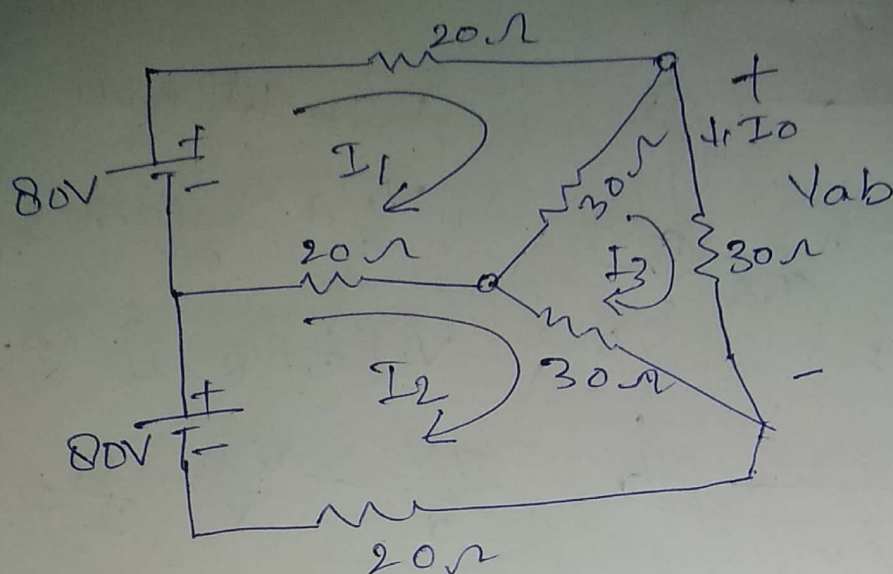 20Ω
+
80V
+
-
I1
30Ω
↓ I0
Vab
20Ω
I3
30Ω
I2
30Ω
-
80V
+
-
20Ω